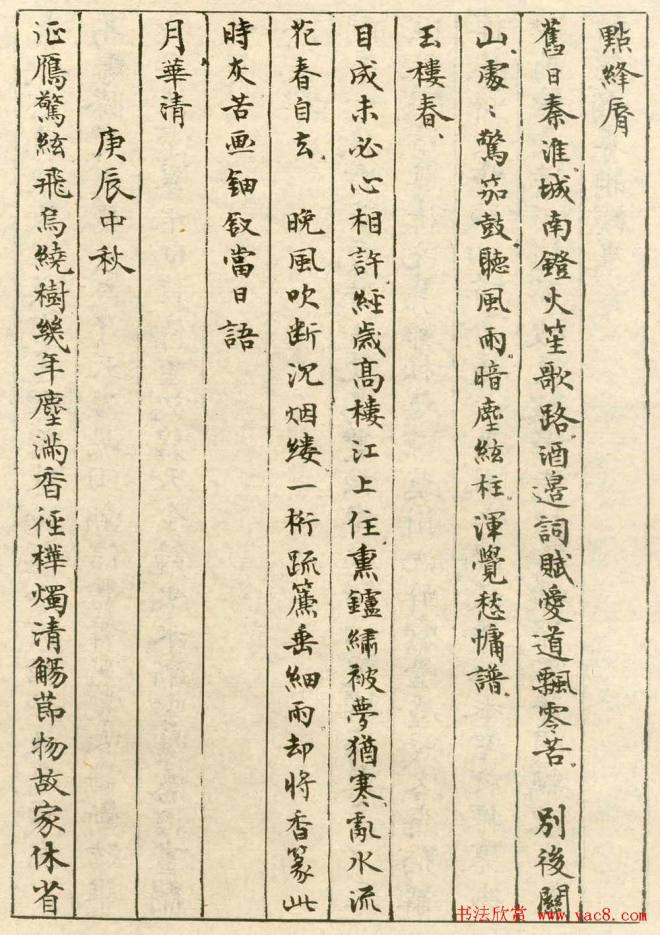 點絳脣
舊日秦淮城南鐙火笙歌路酒邉詞賦愛道飄零苦　別後關
山處〻驚笳鼓聽風雨暗塵絃柱渾覺愁慵譜
玉樓春
目成未必心相許經歲髙樓江上住熏鑪繡被夢猶寒亂水流
花春自去　晚風吹断沉烟缕一桁疏簾垂細雨却將香篆此
時灰苦画鈿釵當日語
月華清
庚辰中秋
征鴈驚絃飛烏繞樹幾年塵滿香徑樺燭清觴節物故家休省
书法欣赏 www.yac8.com